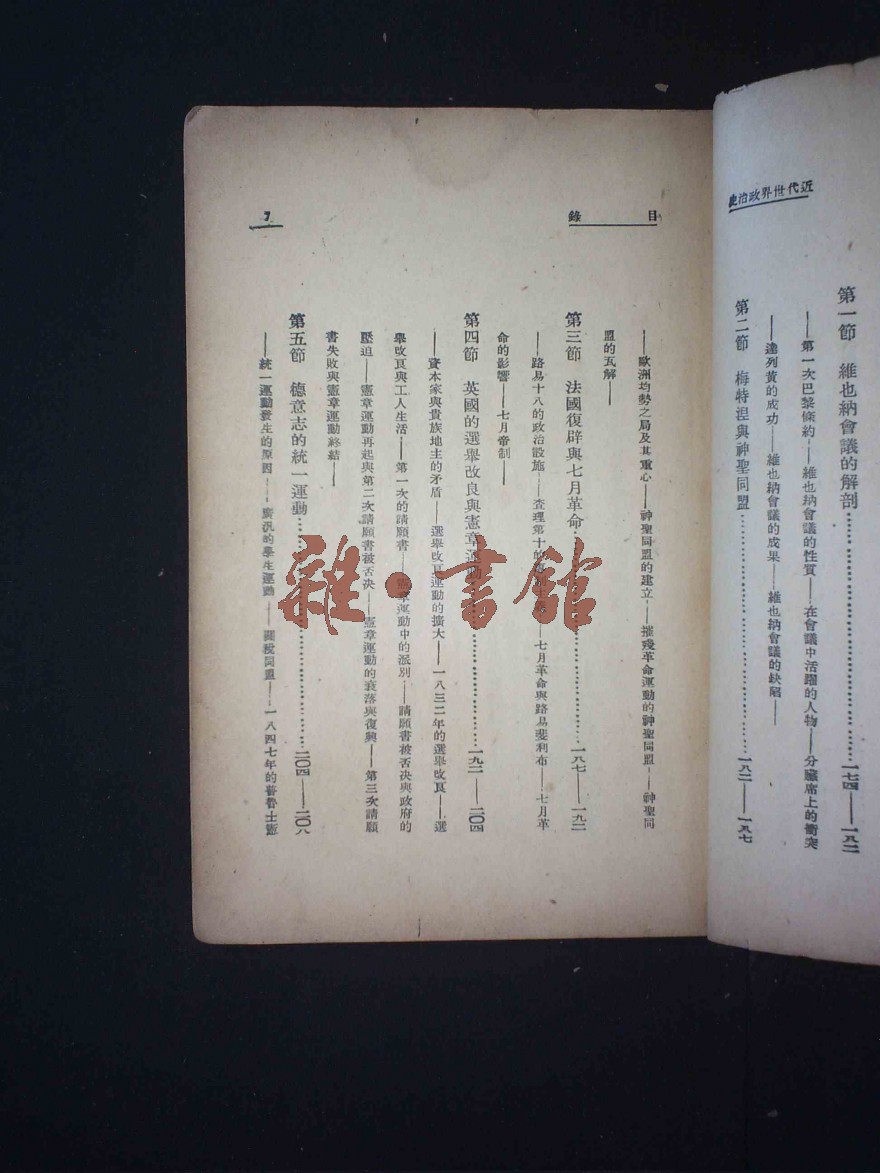 近代世界政治史
第一節　維也納會議的解剖……一七四——一八二
——第一次巴黎條約——維也納會議的性質——在會議中活躍的人物——分贓席上的衝突
——達列黃的成功——維也納會議的成果——維也納會議的缺陷——
第二節　梅特涅與神聖同盟……一八二——一八七
目錄
7
——歐洲均勢之局及其重心——神聖同盟的建立——摧殘革命運動的神聖同盟——神聖同
盟的瓦解——
第三節　法國復辟與七月革命……一八七——一九二
——路易十八的政治設施——查理第十的——七月革命與路易斐利布——七月革
命的影響——七月帝制——
第四節　英國的選舉改良與憲章運動……一九二——二〇四
——資本家與貴族地主的矛盾——選舉改良運動的擴大——一八三二年的選舉改良——選
舉改良與工人生活——第一次的請願書——憲章運動中的派別——請願書被否決與政府的
壓迫——憲章運動再起與第二次請願書被否決——憲章運動的衰落與復興——第三次請願
書失敗與憲章運動終結——
第五節　德意志的統一運動……二〇四——二〇八
——統一運動發生的原因——廣汎的學生運動——關稅同盟——一八四七年的普魯士憲
雜·書館